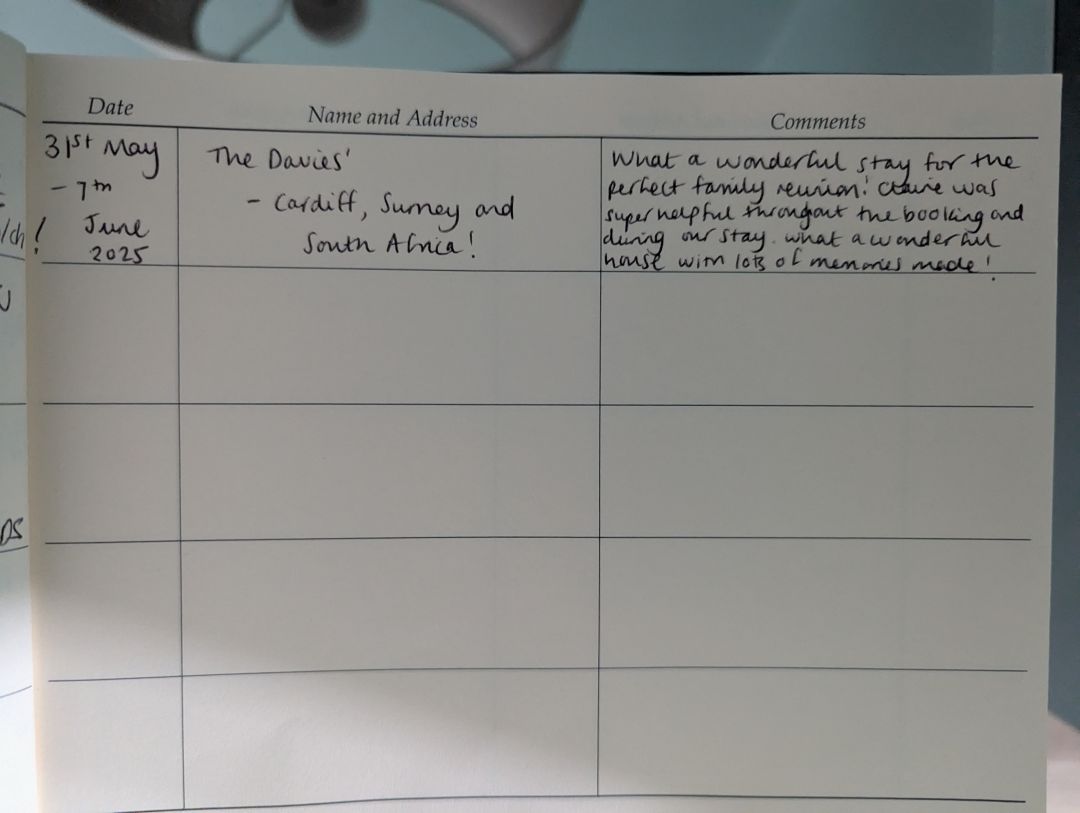 Date Name and Address Comments
31st May
- 7th
June
2025
The Davies'
- Cardiff, Surrey and
South Africa!
What a wonderful stay for the
perfect family reunion! Claire was
super helpful throughout the booking and
during our stay. what a wonderful
house with lots of memories made!